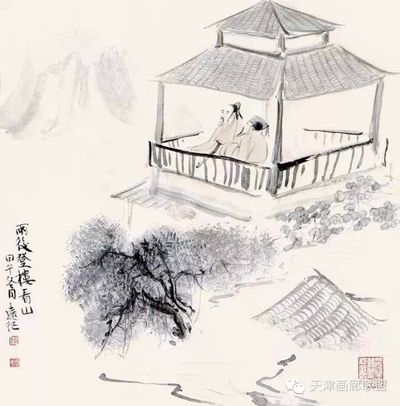 雨後登樓看山
甲午冬月遠征
天津画廊联盟